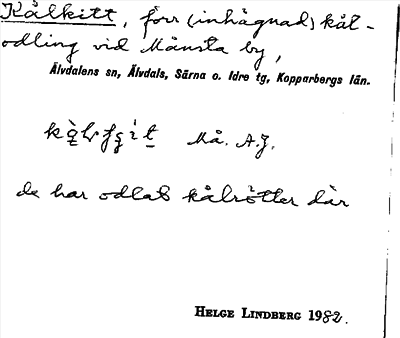 Kålkitt, förr (inhägnad) kål-
odling vid Månsta by,
Älvdalens sn, Älvdals, Särna o. Idre tg, Kopparbergs län.
Må. A.J.
de har odlat kålrötter där
HELGE LINDBERG 1982.